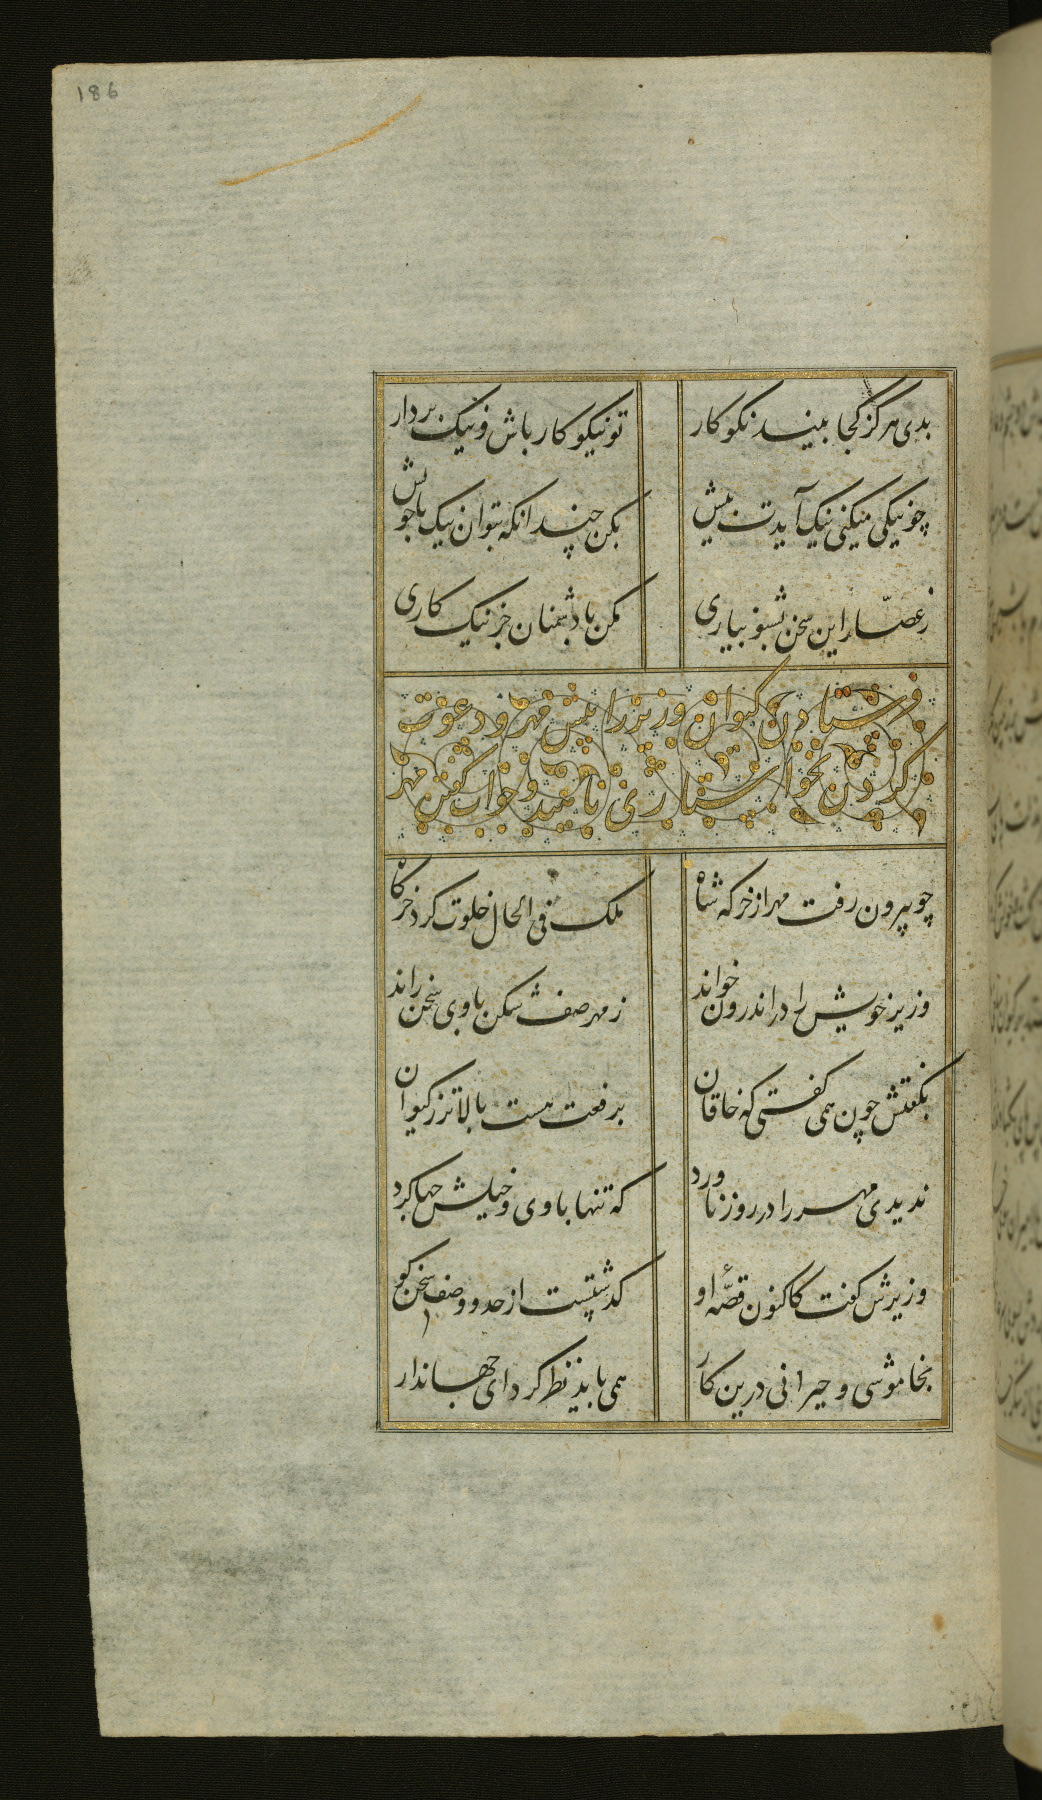 186
بدی هرگز کجا بیند نکوکار
تو نیکوکار باش و نیک بردار
چو نیکی میکنی نیک آیدت پیش
بکن چندانکه بتوان نیک با خویش
ز عصّار این سخن بشنو بیاری
مکن با دشمنان جز نیک کاری
فرستادن کیوان وزیر را پیش مهر و دعوت
کردن بخواستاری ناهید و جواب گفتن مهر
چو بیرون رفت مهر از خرکه شاه
ملک فی الحال خلوت کرد خرکاه
وزیر خویش را در اندرون خواند
ز مهر صف شکن با وی سخن راند
بگفتش چون همی گفتی که خاقان
برفعت هست بالاتر ز کیوان
ندیدی مهر را در روز ناورد
که تنها با وی و خیلش چها کرد
وزیرش گفت کاکنون قصّهٔ او
گذشتست از حد و وصف سخن گو
بخاموشی و حیرانی درین کار
همی باید نظر کرد ای جهاندار